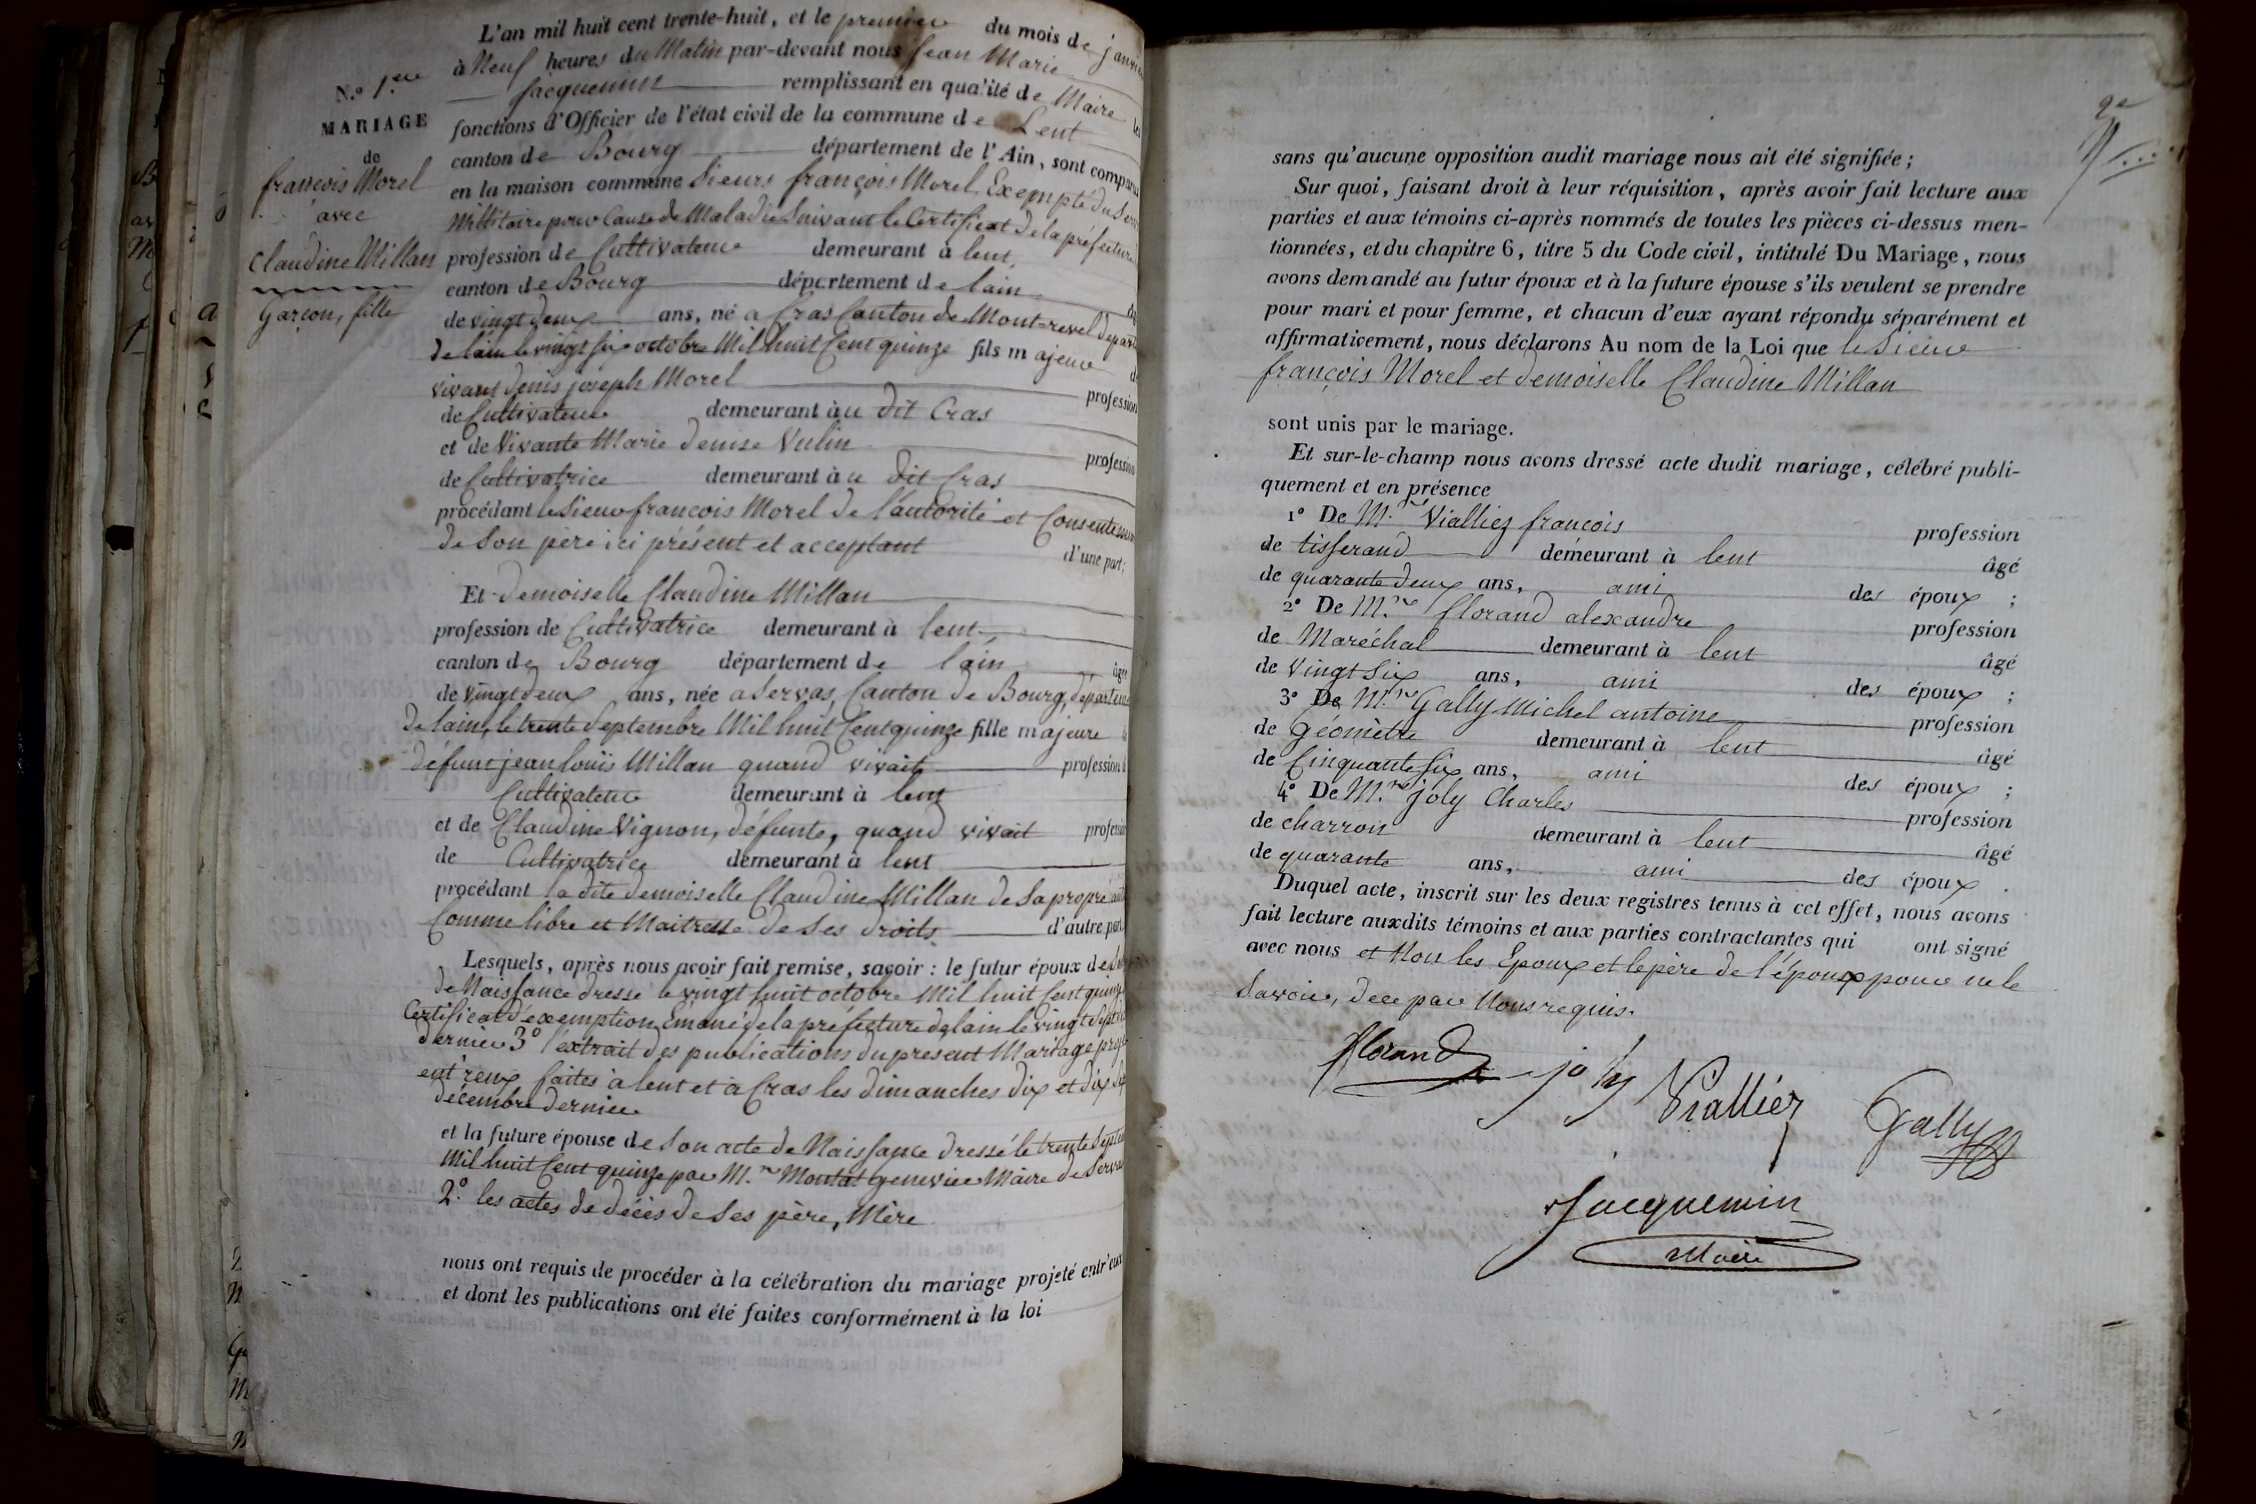 L'an mil huit cent trente-huit, et le premier du mois de janvier
à Neuf heures du Matin par-devant nous Jean Marie
Jacquemin remplissant en qualité de Maire les
fonctions d'Officier de l'état civil de la commune de Lent
canton de Bourg département de l'Ain, sont comparus
en la maison commune Sieurs françois Morel, Exempté du Serv
Millitaire pour Cause de Maladie Suivant le Certificat de la préfecture
profession de Cultivateur demeurant à lent
canton de Bourg département de lain
de vingt deux ans, né à Cras Canton de Montrevel départ
de lain le vingt six octobre Mil huit Cent quinze fils majeur
vivant denis joseph Morel profession
de Cultivateur demeurant àu dit Cras
et de Vivante Marie denise Vulin profession
de Cultivatrice demeurant àu dit Cras
procédant le Sieur francois Morel de l'autorité et Consentement
de Son père ici présent et acceptant d'une part;
Et demoiselle Claudine Millan
profession de Cultivatrice demeurant à lent
canton de Bourg département de lain âgée
de vingt deux ans, née a Servas, Canton de Bourg, départeme
de lain, le trente Septembre Mil huit Cent quinze fille majeure
défunt jean louis Millan quand vivait profession
Cultivateur demeurant à lent
et de Claudine Vignon, défunte, quand vivait profession
de Cultivatrice demeurant à lent
procédant la dite demoiselle Claudine Millan de Sa propre
Comme libre et Maitresse de Ses droits d'autre part.
Lesquels, après nous avoir fait remise, savoir: le futur époux de
de Naissance dressé le vingt huit octobre Mil huit Cent quinze
Certificat d'exemption Emané de la préfecture de lain le vingt Sept
dernier 3° l'extrait des publications du present Mariage proje
entr'eux faites à lent et à Cras les dimanches dix et dix Sept
décembre dernier
et la future épouse de Son acte de Naissance dressé le trente Septem
Mil huit Cent quinze par M.r Montat genevier Maire de Servas
2.° les actes de décès de Ses père, Mère
nous ont requis de procéder à la célébration du mariage projeté entr'eux
et dont les publications ont été faites conformément à la loi
N.° 1.er
MARIAGE
de
françois Morel
avec
Claudine Millan
Garçon, fille
2e
sans qu'aucune opposition audit mariage nous ait été signifiée;
Sur quoi, faisant droit à leur réquisition, après avoir fait lecture aux
parties et aux témoins ci-après nommés de toutes les pièces ci-dessus men-
tionnées, et du chapitre 6, titre 5 du Code civil, intitulé Du Mariage, nous
avons demandé au futur époux et à la future épouse s'ils veulent se prendre
pour mari et pour femme, et chacun d'eux ayant répondu séparément et
affirmativement, nous déclarons Au nom de la Loi que le Sieur
françois Morel et demoiselle Claudine Millan
sont unis par le mariage.
Et sur-le-champ nous avons dressé acte dudit mariage, célébré publi-
quement et en présence
1° De M.r Vialliez françois profession
de tisserand demeurant à lent âgé
de quarante deux ans, ami des époux;
2° De M.r florand alexandre profession
de Maréchal demeurant à lent âgé
de Vingt Six ans, ami des époux;
3° De M.r Gally Michel antoine profession
de géomètre demeurant à lent âgé
de Cinquante Six ans, ami des époux;
4° De M.r joly Charles profession
de charron demeurant à lent âgé
de quarante ans, ami des époux.
Duquel acte, inscrit sur les deux registres tenus à cet effet, nous avons
fait lecture auxdits témoins et aux parties contractantes qui ont signé
avec nous et Non les Epoux et le père de l'époux pour ne le
Savoir, de ce par Nous requis.
florand joly Vialliéz Gally
Jacquemin
Maire